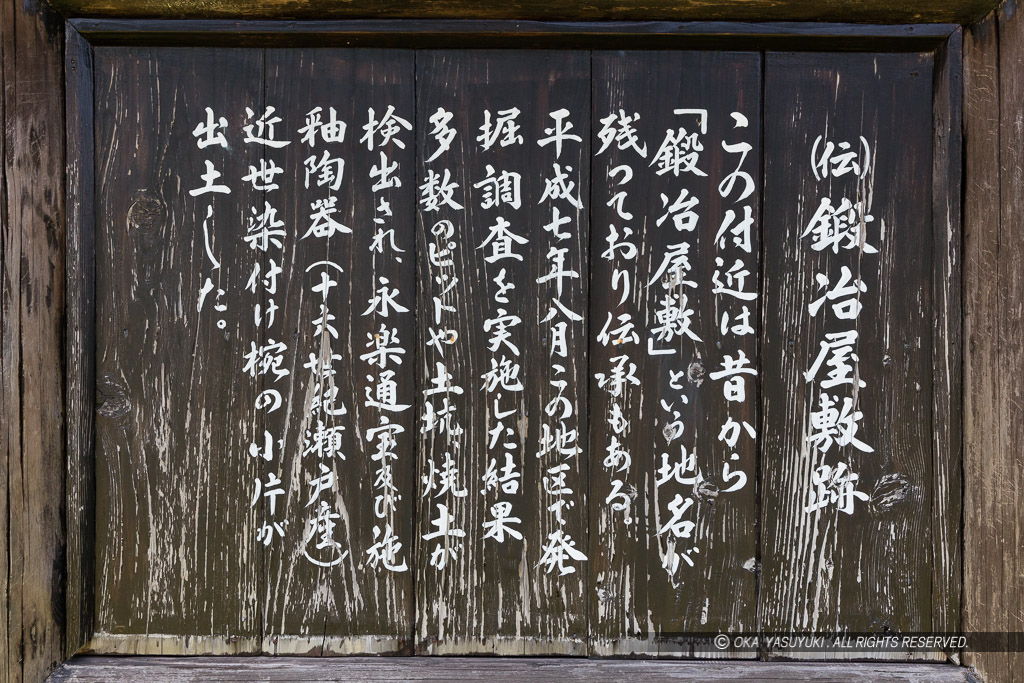 (伝)鍛冶屋敷跡
この付近は昔から
「鍛冶屋敷」という地名が
残っており伝承もある。
平成七年八月この地区で発
掘調査を実施した結果
多数のピットや土坑焼土が
検出され、永楽通宝及び施
釉陶器(十六世紀瀬戸産)
近世染付け椀の小片が
出土した。
© OKA YASUYUKI. ALL RIGHTS RESERVED.